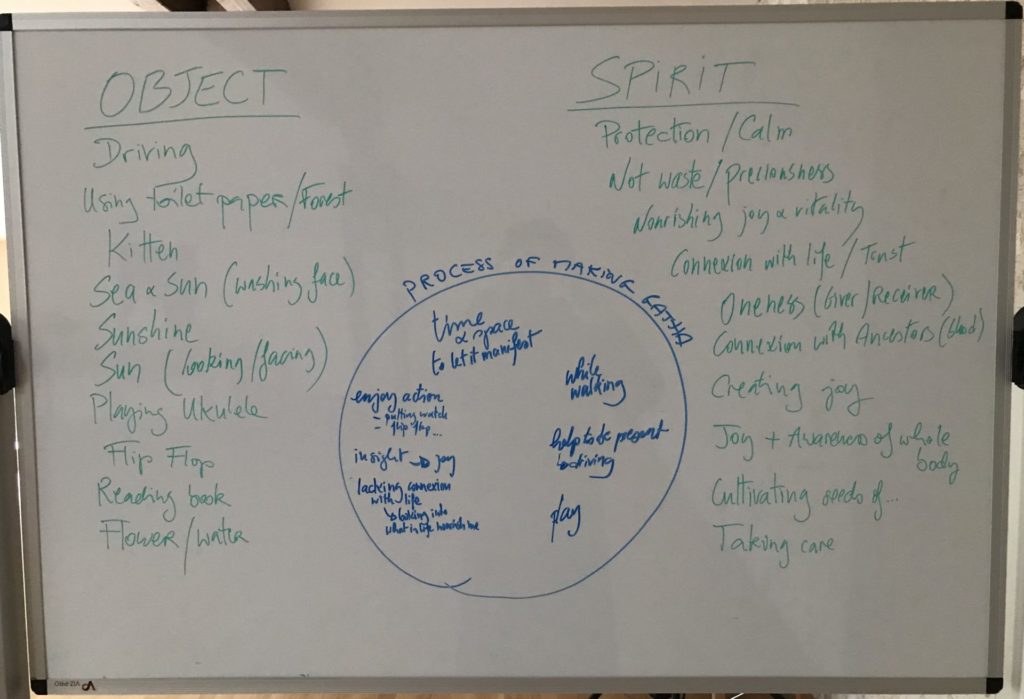 OBJECT
Driving
Using toilet paper/Forest
Kitten
Sea & Sun (washing face)
Sunshine
Sun (looking/facing)
Playing Ukulele
Flip Flop
Reading book
Flower/water
PROCESS OF MAKING GATHA
time
& space
to let it manifest
enjoy action
- putting watch
- flip flop...
insight → joy
lacking connexion
with life
↳ looking into
what in life nourish me
while
walking
help to be present
driving
play
SPIRIT
Protection / Calm
Not waste/preciousness
Nourishing joy & vitality
Connexion with life / Trust
Oneness (Giver/Receiver)
Connexion with Ancestors (blood)
Creating joy
Joy + Awareness of whole
body
Cultivating seeds of...
Taking care